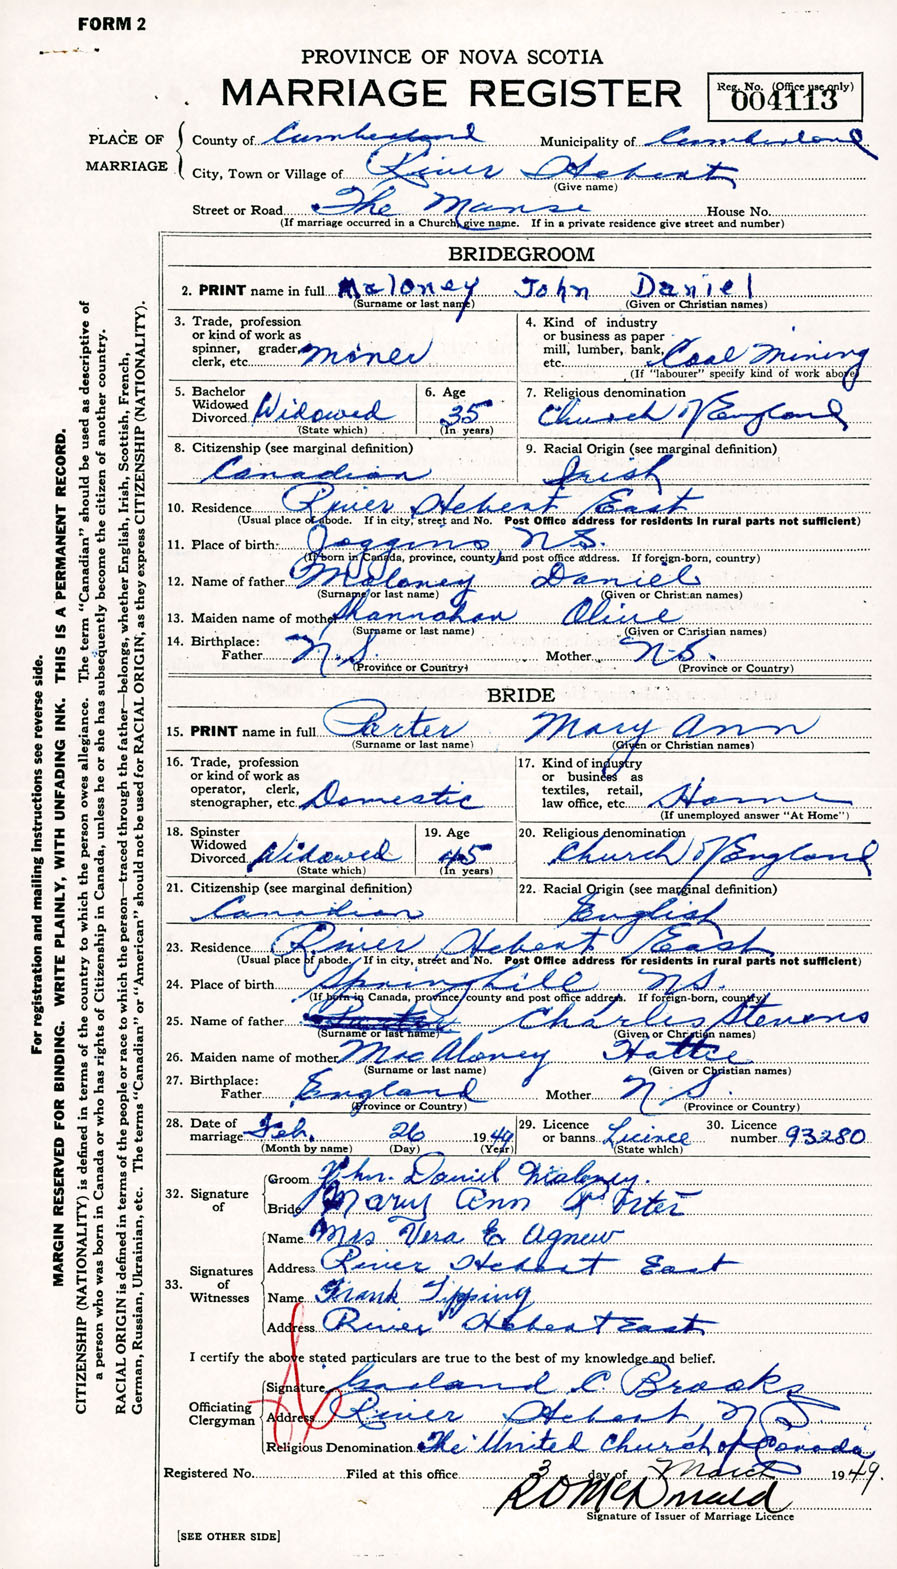 FORM 2
PROVINCE OF NOVA SCOTIA
MARRIAGE REGISTER
Reg. No. (Office use only)
004113
PLACE OF MARRIAGE
County of Cumberland Municipality of Cumberland
City, Town or Village of River Hebert
(Give name)
Street or Road The Manse House No.
(If marriage occurred in a Church, give name. If in a private residence give street and number)
BRIDEGROOM
2. PRINT name in full Maloney John Daniel
(Surname or last name) (Given or Christian names)
3. Trade, profession or kind of work as spinner, grader, clerk, etc. Miner
4. Kind of industry or business as paper mill, lumber, bank, etc. Coal Mining
(If "labourer" specify kind of work above)
5. Bachelor Widowed Divorced Widowed
(State which)
6. Age 35
(In years)
7. Religious denomination
Church of England
8. Citizenship (see marginal definition)
Canadian
9. Racial Origin (see marginal definition)
Irish
10. Residence River Hebert East
(Usual place of abode. If in city, street and No. Post Office address for residents in rural parts not sufficient)
11. Place of birth: Joggins, N.S.
(If born in Canada, province, county and post office address. If foreign-born, country)
12. Name of father Maloney Daniel
(Surname or last name) (Given or Christian names)
13. Maiden name of mother Shannahan Olive
(Surname or last name) (Given or Christian names)
14. Birthplace:
Father N.S. Mother N.S.
(Province or Country) (Province or Country)
BRIDE
15. PRINT name in full Porter Mary Ann
(Surname or last name) (Given or Christian names)
16. Trade, profession or kind of work as operator, clerk, stenographer, etc. Domestic
17. Kind of industry or business as textiles, retail, law office, etc. Home
(If unemployed answer "At Home")
18. Spinster Widowed Divorced Widowed
(State which)
19. Age 45
(In years)
20. Religious denomination
Church of England
21. Citizenship (see marginal definition)
Canadian
22. Racial Origin (see marginal definition)
English
23. Residence River Hebert East
(Usual place of abode. If in city, street and No. Post Office address for residents in rural parts not sufficient)
24. Place of birth Springhill N.S.
(If born in Canada, province, county and post office address. If foreign-born, country)
25. Name of father Charles Stevens
(Surname or last name) (Given or Christian names)
26. Maiden name of mother MacAloney Hattie
(Surname or last name) (Given or Christian names)
27. Birthplace:
Father England Mother N.S.
(Province or Country) (Province or Country)
28. Date of marriage Feb. 26 1949
(Month by name) (Day) (Year)
29. Licence or banns Licince
(State which)
30. Licence number 93280
32. Signature of
Groom John Daniel Maloney.
Bride Mary Ann Porter
33. Signatures of Witnesses
Name Mrs Vera E Agnew
Address River Hebert East
Name Frank Tipping
Address River Hebert East
I certify the above stated particulars are true to the best of my knowledge and belief.
Officiating Clergyman
Signature Garland C. Brooks
Address River Hebert, N.S.
Religious Denomination The United Church of Canada
Registered No. Filed at this office 3 day of March 1949.
R D McDonald
Signature of Issuer of Marriage Licence
[SEE OTHER SIDE]
For registration and mailing instructions see reverse side.
MARGIN RESERVED FOR BINDING. WRITE PLAINLY, WITH UNFADING INK. THIS IS A PERMANENT RECORD.
CITIZENSHIP (NATIONALITY) is defined in terms of the country to which the person owes allegiance. The term "Canadian" should be used as descriptive of
a person who was born in Canada or who has rights of Citizenship in Canada, unless he or she has subsequently become the citizen of another country.
RACIAL ORIGIN is defined in terms of the people or race to which the person—traced through the father—belongs, whether English, Irish, Scottish, French,
German, Russian, Ukrainian, etc. The terms "Canadian" or "American" should not be used for RACIAL ORIGIN, as they express CITIZENSHIP (NATIONALITY).